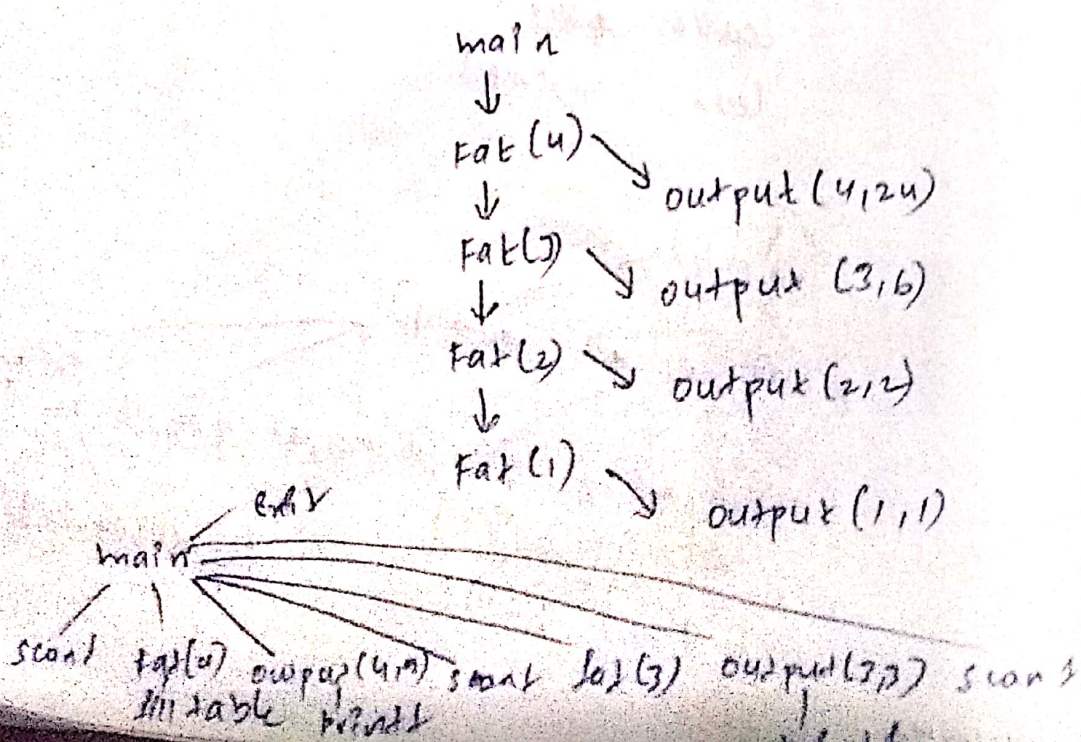 main
Fat (4)
output (4,24)
Fat (3)
output (3,6)
Fat (2)
output (2,2)
Fat (1)
output (1,1)
exit
main
scanf fat(4) output(4,) scanf fat(3) output(3,3) scanf
table printf